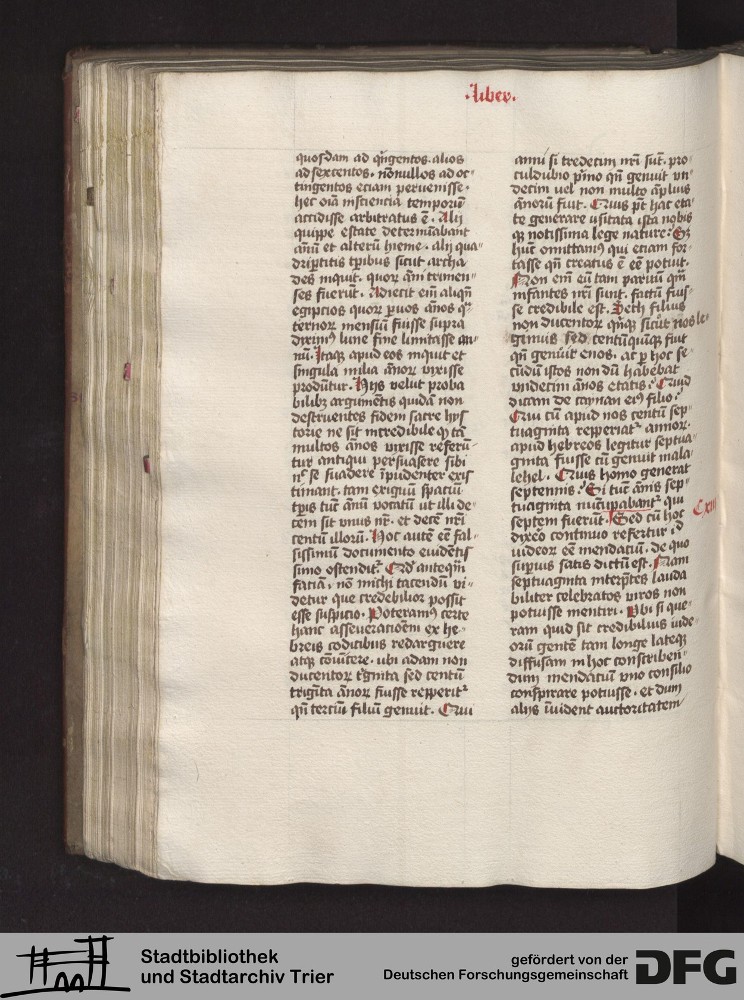 ·Liber·
quosdam ad qͥngentos· alios
ad sexcentos· nōnullos ad oc-
tingentos eciam pervenisse·
hec oīa insciencia temporū
accidisse arbitratus ē· Alij
quippe estate determinabant
annū et alterū hieme· alij qua-
dripͬtitis tꝑibus sicut archa
des inquit· quorꝝ āni trimen-
ses fuerūt· Adiecit eciā aliqn̄
egipcios quorꝝ pͬuos ānos qͣ-
ternorꝝ mensiū fuisse supra
diximꝰ lune fine limitasse an-
nū· Itaqꝫ apud eos inquit et
singula milia ānorꝝ vixisse
produntur· Hijs velut proba
bilibꝫ argumētis quidā non
destruentes fidem sacre hys
torie ne sit incredibile qꝫ tā
multos ānos vixisse referū-
tur antiqui persuasere sibi
nͨ se suadere īpudenter exis
timant· tam exiguū spaciū
tꝑis tūc annū vocatū ut illi de-
cem sit vnus nr̄· et decē nr̄i
centū illorū· Hoc autē eē fal-
sissimū documento evidētis
simo ostenditͬ· Qd̓ anteqͣm̄
faciā· nō michi tacendū vi-
detur que credebilior possit
esse suspicio· Poteramꝰ certe
hanc asseveracioēm ex he-
breis codicibus redarguere
atqꝫ cōuīcere· ubi adam non
ducentorꝝ tͥginta sed centū
triginta ānorꝝ fuisse reperitͬ
qn̄ terciū filiū genuit· Qui
anni si tredecim nr̄i sūt· pro-
culdubio pͥmo qn̄ genuit vn-
decim vel non multo āplius
ānorū fuit· Quis pt̄ hac eta-
te generare usitata ista nobis
qꝫ notissima lege nature· Sꝫ
hūc omittamꝰ qui eciam for-
tasse qn̄ creatus ē eē potuit·
Non em̄ eū tam parvū qͣm̄
infantes nr̄i sunt· factū fuis-
se credibile est· Seth filius
non ducentorꝝ qͥnqꝫ sicut nos le-
gimus sed centūquīqꝫ fuit
qn̄ genuit enos· ac ꝑ hoc se-
cūdū istos nondū habebat
vndecim ānos etatis· Quid
dicam de caynan eiꝰ filio·
Qui cū apud nos centū sep-
tuaginta reperiatͬ annorꝝ·
apud hebreos legitur septua-
ginta fuisse cū genuit mala-
lehel· Quis homo generat
septennis· Si tūc ānis sep-
tuaginta nūcupabantͬ qui
septem fuerūt· Sed cū hoc
dixeō continuo refertur id
videorꝝ eē mendaciū· de quo
supius satis dictū est· Nam
septuaginta interp̄tes lauda
biliter celebratos viros non
potuisse mentiri· Vbi si que-
ram quid sit credibilius iude-
orū gentē tam longe lateqꝫ
diffusam in hoc conscriben-
dum mendaciū vno consilio
conspirare potuisse· et dum
alijs īuident auctoritatem
Stadtbibliothek
und Stadtarchiv Trier
gefördert von der
Deutschen Forschungsgemeinschaft
DFG